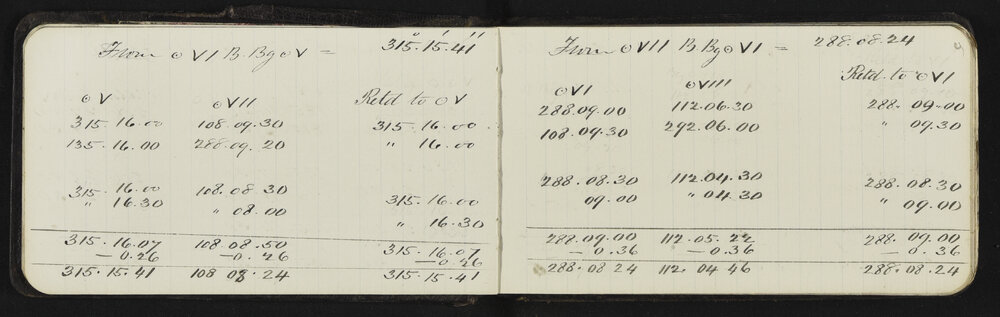 From ⊙ VI B. Bg ⊙ V = 315.15.41
⊙ V ⊙ VII Retd to ⊙ V
315.16.00 108.09.30 315.16.00
135.16.00 288.09.20 " 16.00
315.16.00 108.08.30 315.16.00
" 16.30 " 08.00 " 16.30
315.16.07 108.08.50 315.16.07
— 0.26 — 0.26 — 0.26
315.15.41 108 08.24 315.15.41
From ⊙ VII B Bg ⊙ VI = 288.08.24
Retd to ⊙ VI
⊙ VI ⊙ VIII
288.09.00 112.06.30 288.09.00
108.09.30 292.06.00 " 09.30
288.08.30 112.04.30 288.08.30
09.00 " 04.30 " 09.00
288.09.00 112.05.22 288.09.00
— 0.36 — 0.36 — 0.36
288.08 24 112.04 46 288.08.24